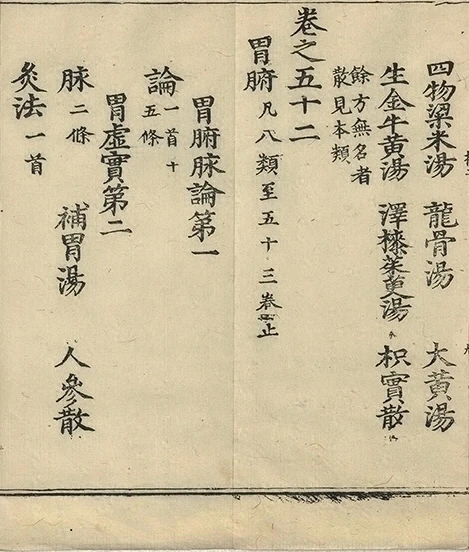 四物粱米湯 龍骨湯 大黃湯
生金牛黃湯 澤㯶茱萸湯 枳實散
餘方無名者
散見本類
卷之五十二
胃腑 凡八類至五十三卷止
胃腑脉論第一
論 一首十
五條
胃虛實第二
脉 二條 補胃湯 人參散
灸法 一首